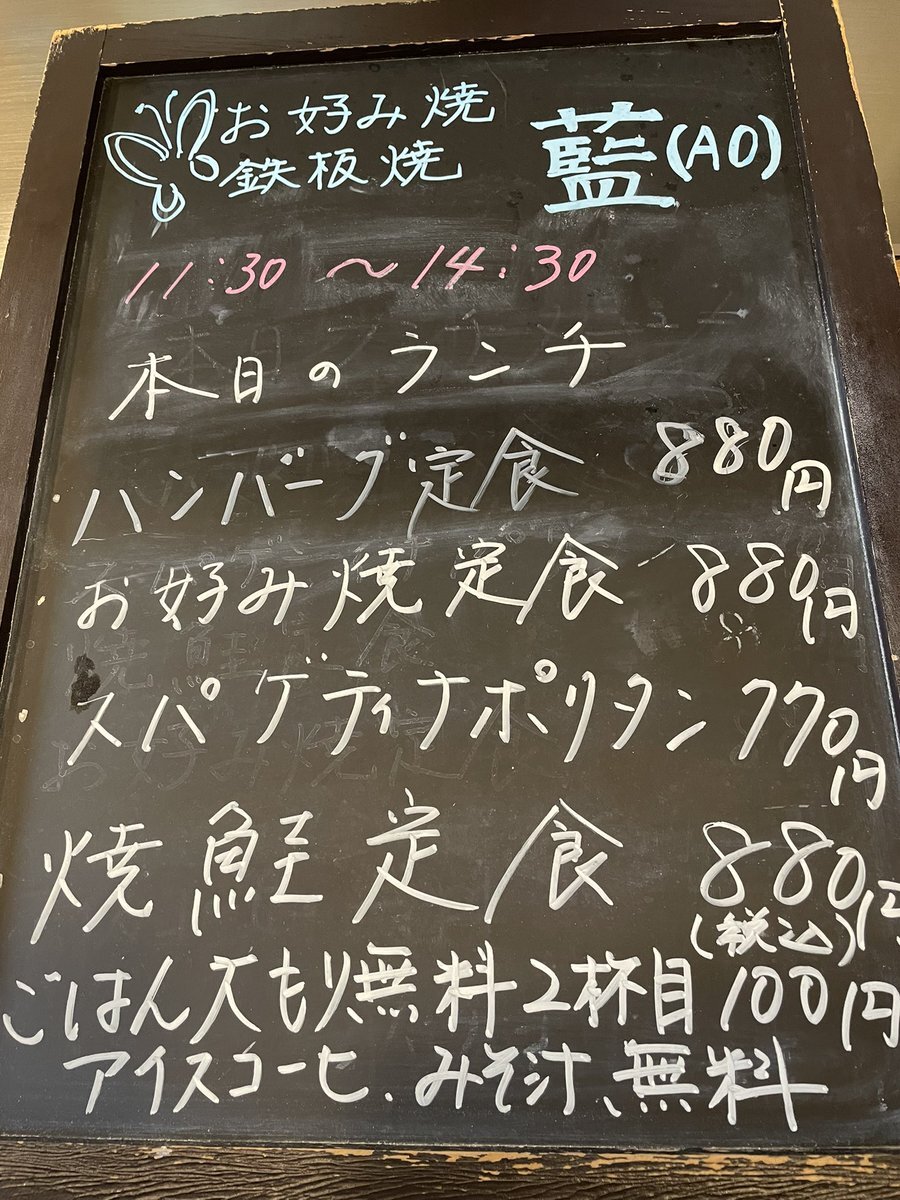 お好み焼
鉄板焼
藍(AO)
11:30 〜14:30
本日のランチ
ハンバーグ定食 880円
お好み焼定食 880円
スパゲティナポリタン 770円
焼鮭定食 880円
(税込)
ごはん大もり無料2杯目100円
アイスコーヒ、みそ汁、無料